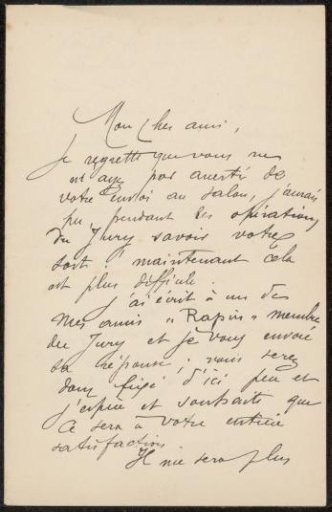 Mon cher ami,
Je regrette que vous ne
m'ayez pas averti de
votre envoi au salon, j'aurais
pu pendant les opérations
du Jury savoir votre
sort ; maintenant cela
est plus difficile.
J'ai écrit à un de
mes amis „ Rapin " membre
du Jury et je vous envoie
sa réponse ; vous serez
donc fixé d'ici peu et
j'espère et souhaite que
ce sera à votre entière
satisfaction.
Il me sera plus